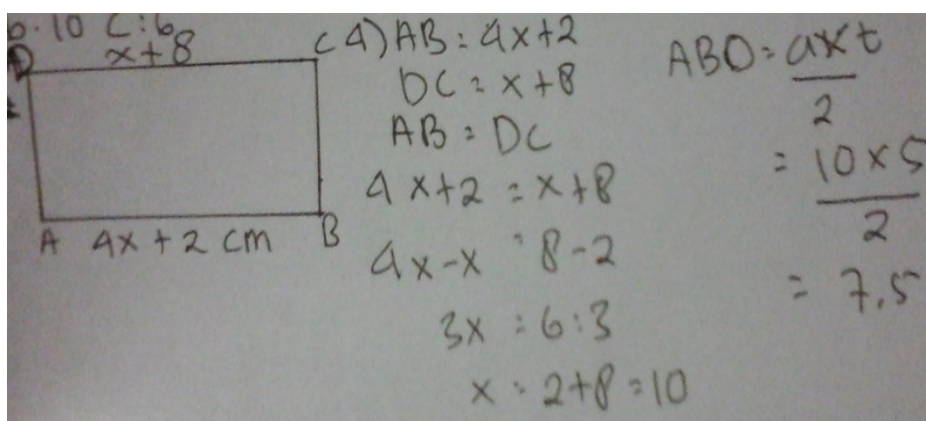 b.10 c:6
x+8
D
C
A 4x+2 cm B
4) AB = 4x+2
DC = x+8
AB = DC
4x+2 = x+8
4x-x = 8-2
3x = 6:3
x = 2+8=10
ABD = axt
2
= 10x5
2
= 7.5